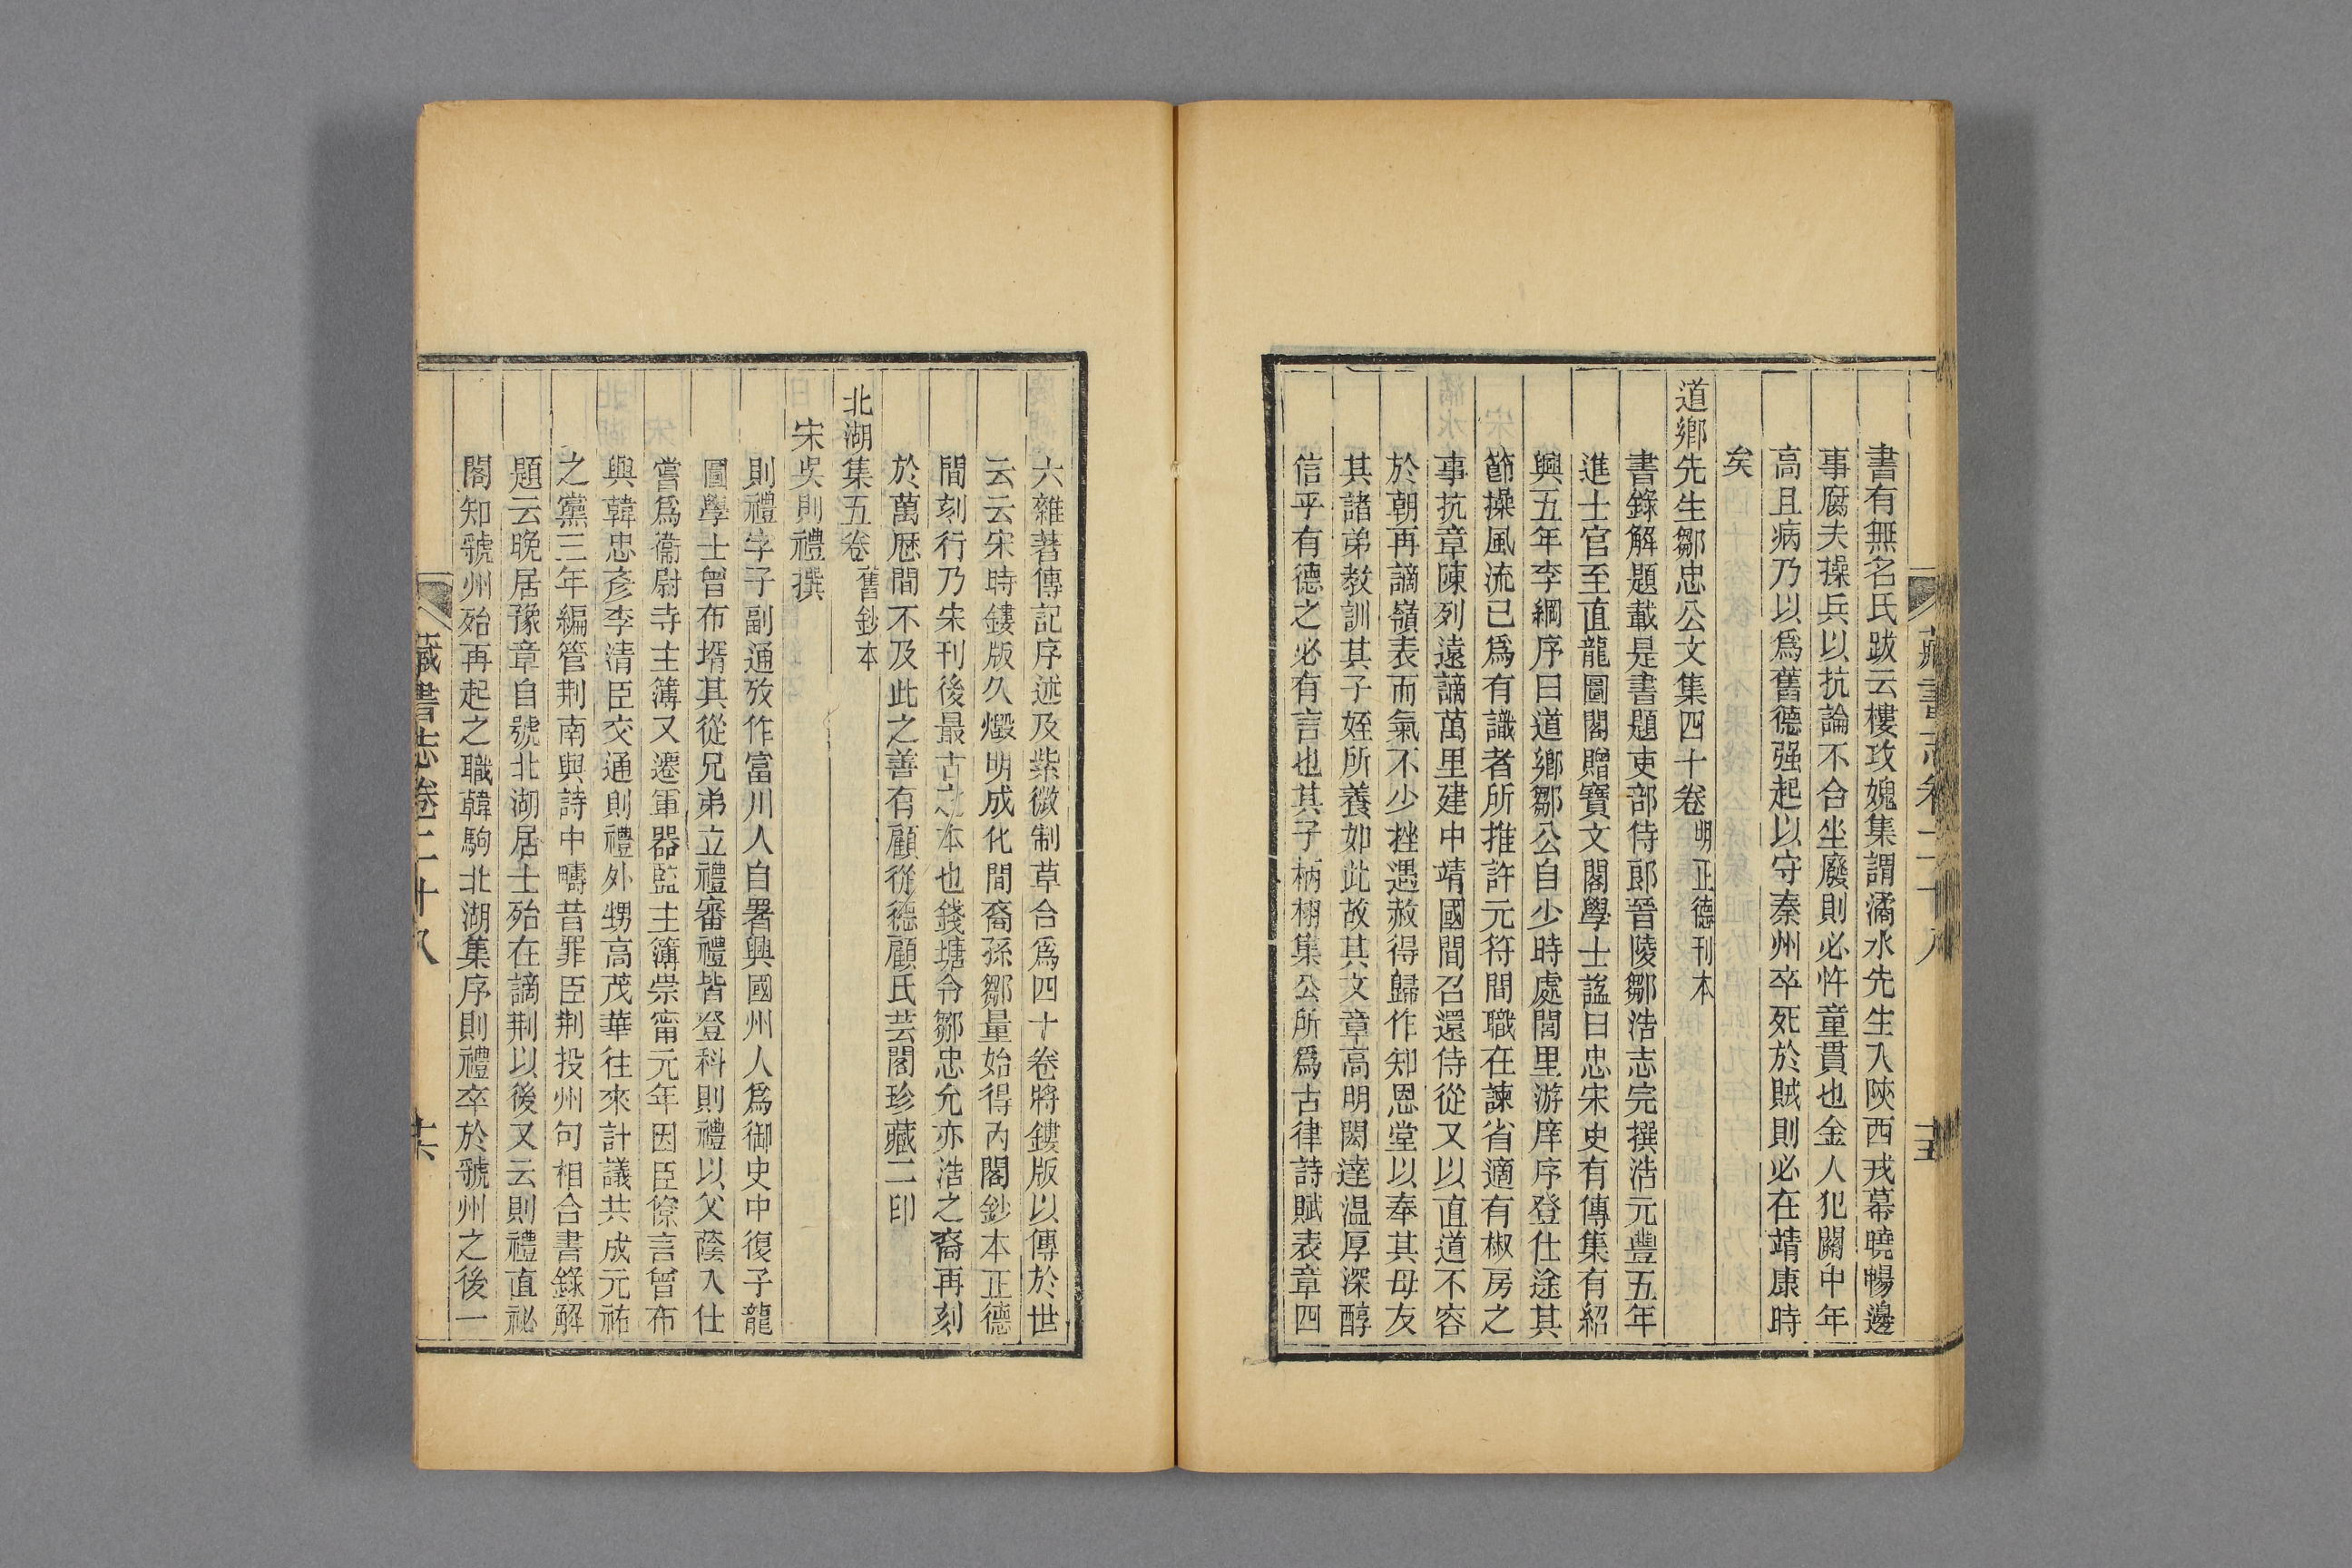 藏書志卷二十八
書有無名氏跋云樓攻媿集謂潏水先生入陝西戎幕曉暢邊
事腐夫操兵以抗論不合坐廢則必忤童貫也金人犯關中年
高且病乃以爲舊德强起以守秦州卒死於賊則必在靖康時
矣
道鄉先生鄒忠公文集四十卷 明正德刊本
書錄解題載是書題吏部侍郎晉陵鄒浩志完撰浩元豐五年
進士官至直龍圖閣贈寶文閣學士諡曰忠宋史有傳集有紹
興五年李綱序曰道鄉鄒公自少時處閭里游庠序登仕途其
節操風流已爲有識者所推許元符間職在諫省適有椒房之
事抗章陳列遠謫萬里建中靖國間召還侍從又以直道不容
於朝再謫嶺表而氣不少挫遇赦得歸作知恩堂以奉其母友
其諸弟教訓其子姪所養如此故其文章高明閎達温厚深醇
信乎有德之必有言也其子柄栩集公所爲古律詩賦表章四
六雜著傳記序述及紫微制草合爲四十卷將鏤版以傳於世
云云宋時鏤版久燬明成化間裔孫鄒量始得內閣鈔本正德
間刻行乃宋刊後最古之本也錢塘令鄒忠允亦浩之裔再刻
於萬厯間不及此之善有顧從德顧氏芸閣珍藏二印
北湖集五卷 舊鈔本
宋吳則禮撰
則禮字子副通攷作富川人自署興國州人爲御史中復子龍
圖學士曾布壻其從兄弟立禮審禮皆登科則禮以父蔭入仕
嘗爲衞尉寺主簿又遷軍器監主簿崇甯元年因臣僚言曾布
與韓忠彥李清臣交通則禮外甥高茂華往來計議共成元祐
之黨三年編管荆南與詩中疇昔罪臣荆投州句相合書錄解
題云晚居豫章自號北湖居士殆在謫荆以後又云則禮直祕
閣知虢州殆再起之職韓駒北湖集序則禮卒於虢州之後一
藏書志卷二十八